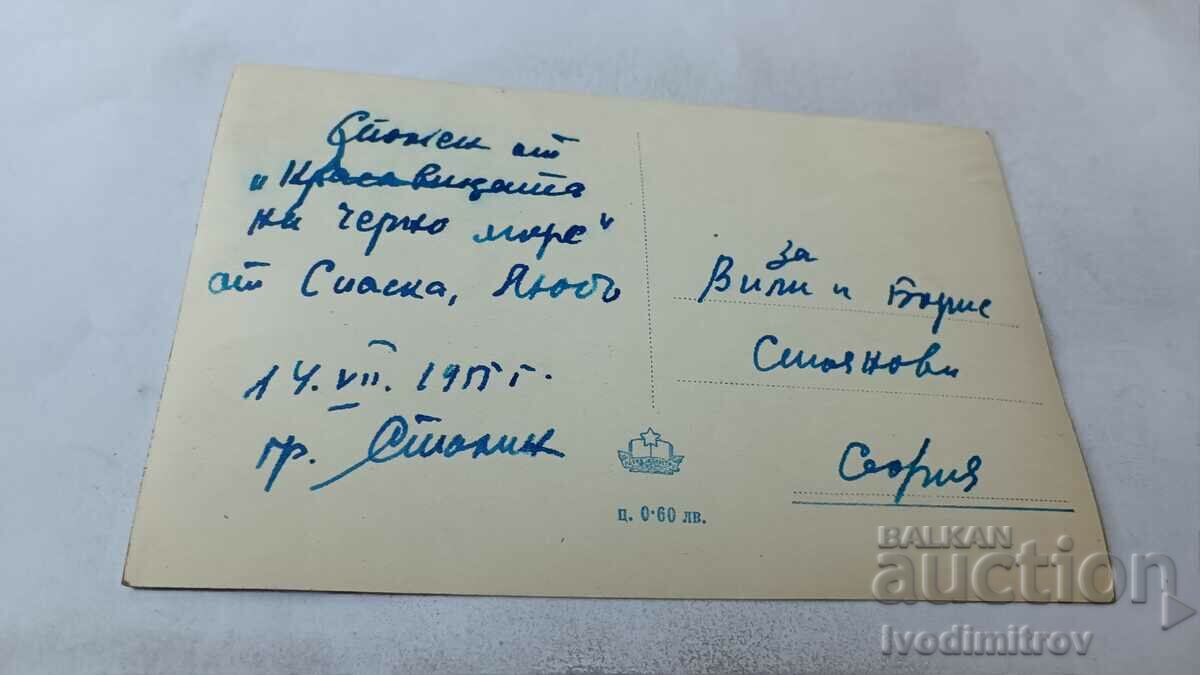 Спомен от
"Красавицата
на Черно море"
от Спаска, Любо
14. VII. 1955 г.
гр. Сталин
за
Вили и Борис
Стоянови
София
ц. 0·60 лв.
BALKAN
auction
Ivodimitrov